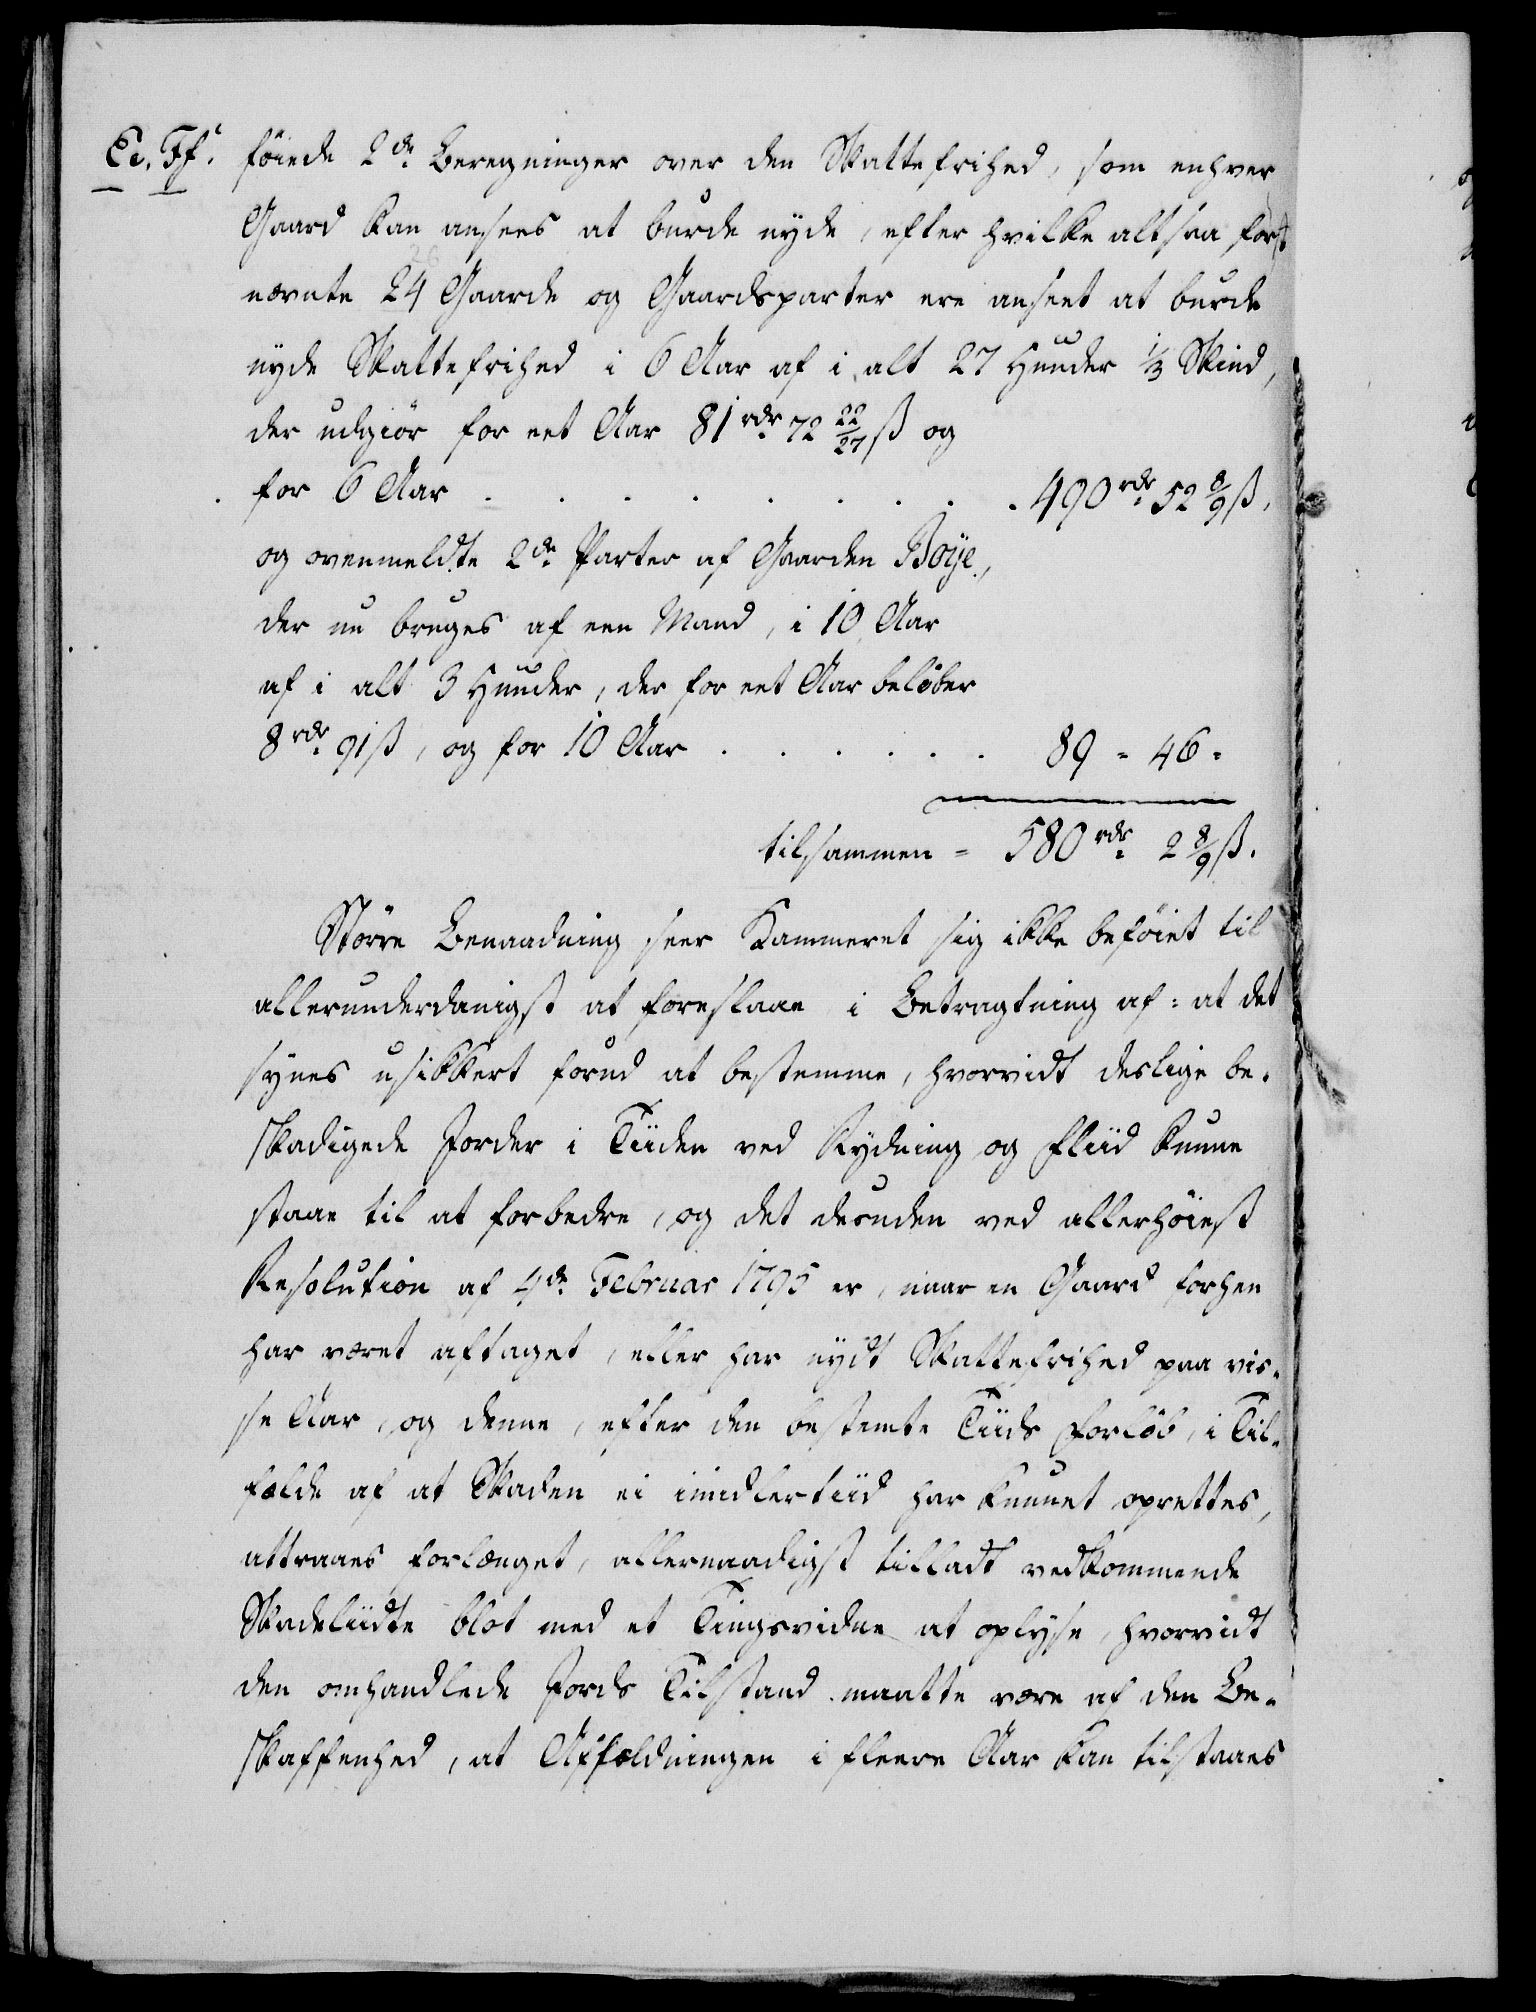 Ee. Ff. föiede 2de Beregninger over den Skattefrihed, som enhver
Gaard kan ansees at burde nyde, efter hvilke altsaa først
nævnte 24 Gaarde og Gaardsparter ere anseet at burde
26
nyde Skattefrihed i 6 Aar af i alt 27 Huuder 1/3 Skind,
der udgiör for eet Aar 81 rdr. 72 22/27 ß og
for 6 Aar . . . . . . . . 490 rdr. 52 8/9 ß.
og ovenmeldte 2de Parter af Gaarden Boÿe,
der nu bruges af een Mand, i 10 Aar
af i alt 3 Huuder, der for eet Aar belöber
8 rdr. 91 ß, og for 10 Aar . . . . . 89 - 46 -
tilsammen = 580 rdr. 2 8/9 ß.
Större Benaadning seer Kammeret sig ikke beföiet til
allerunderdanigst at foreslaae i Betragtning af: at det
synes usikkert forud at bestemme, hvorvidt deslige be-
skadigede Jorder i Tiiden ved Rydning og Fliid kunne
staae til at forbedre, og det desuden ved allerhöiest
Resolution af 4de Februar 1795 er, naar en Gaard forhen
har været aftaget, eller har nydt Skattefrihed paa vis-
se Aar, og denne, efter den bestemte Tiids Forlöb, i Til-
fælde af at Skaden ei imidlertiid har kunnet oprettes,
attraaes forlænget, allernaadigst tilladt vedkommende
Skadeliidte blot med et Tingsvidne at oplyse, hvorvidt
den omhandlede Jords Tilstand maatte være af den Be-
skaffenhed, at Affældningen i fleere Aar kan tilstaaes